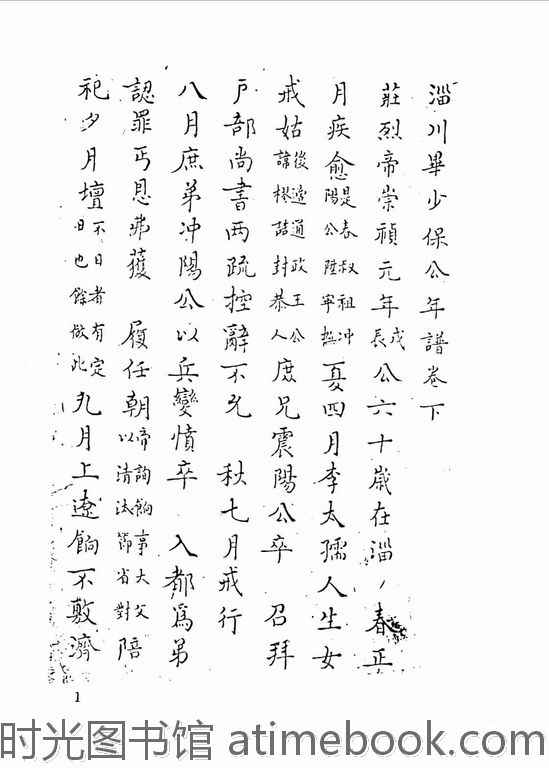 淄川畢少保公年譜卷下
莊烈帝崇禎元年戊辰公六十歲在淄春正
月疾愈是春叔祖冲陽公陞寧撫夏四月李太孺人生女
戒姑後適通政王公諱樛誥封恭人庶兄震陽公卒 召拜
戶部尚書両疏控辭不允 秋七月戒行
八月庶弟冲陽公以兵變憤卒 入都爲弟
認罪丐恩弗獲 履任朝帝詢餉事大父以清汰節省對陪
祀夕月壇不日者有定日也餘倣此九月上遼餉不敷濟
1
时光图书馆 atimebook.com